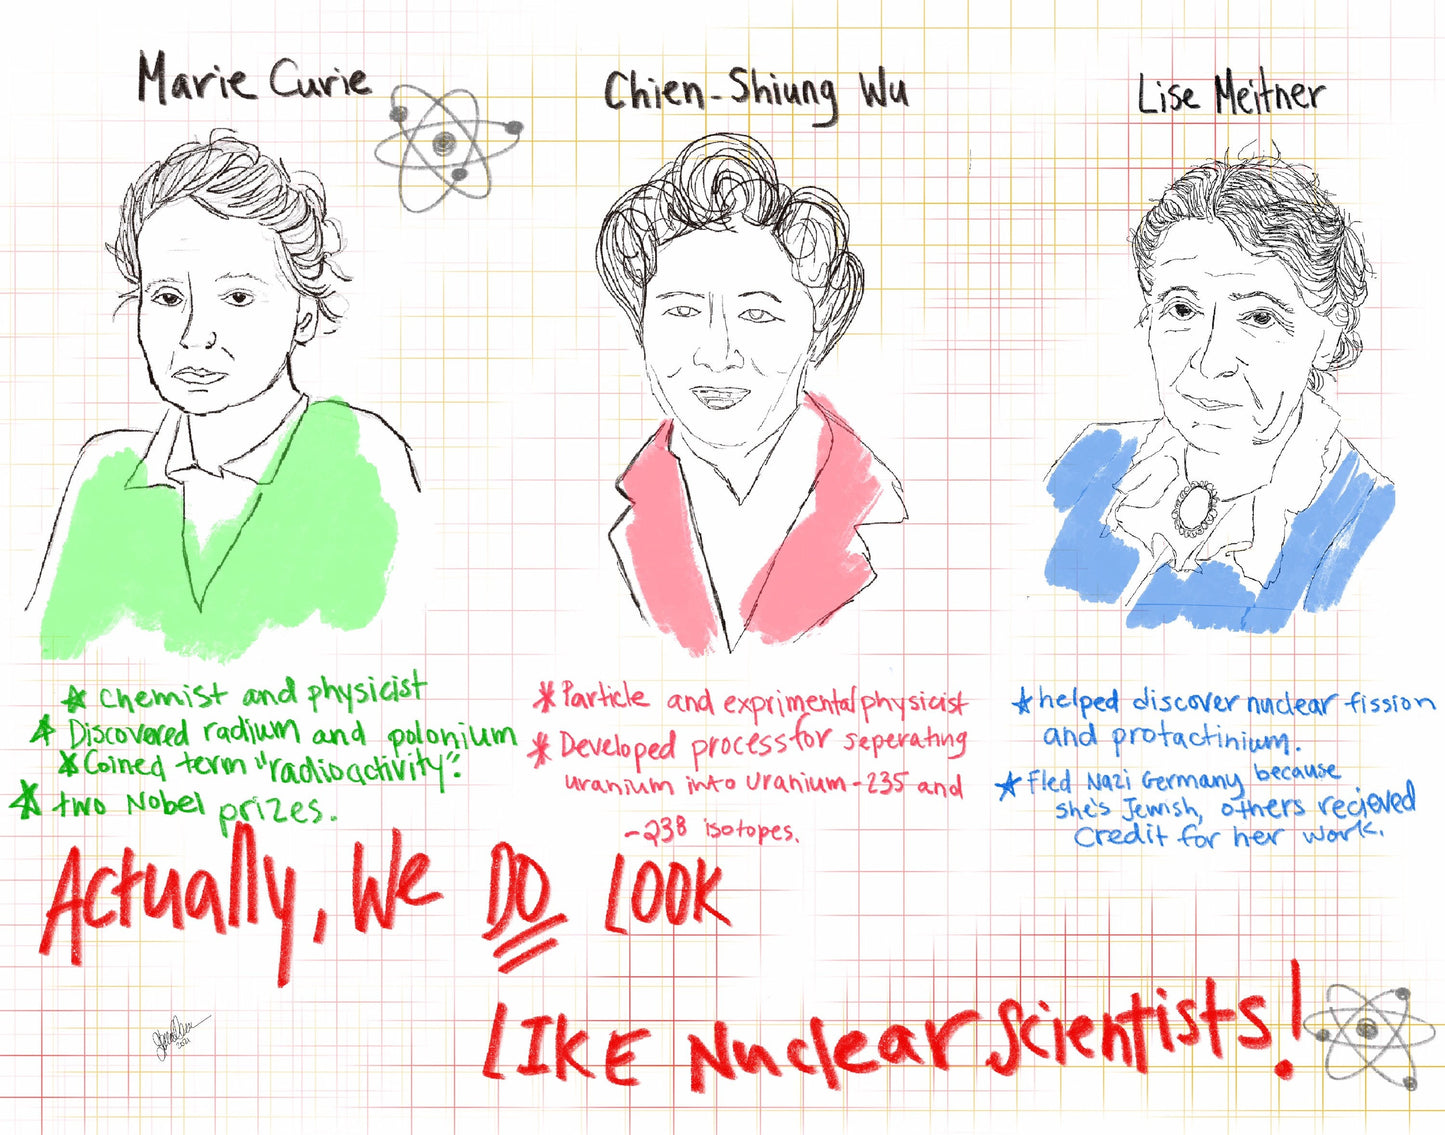 Marie Curie
Chien-Shiung Wu
Lise Meitner
Chemist and physicist
Discovered radium and polonium
Coined term "radioactivity".
two Nobel prizes.
Particle and exprimental physicist
Developed process for seperating
uranium into uranium-235 and
-238 isotopes.
helped discover nuclear fission
and protactinium.
Fled Nazi Germany because
she's Jewish, others recieved
credit for her work.
Actually, We DO LOOK
LIKE Nuclear Scientists!
2021